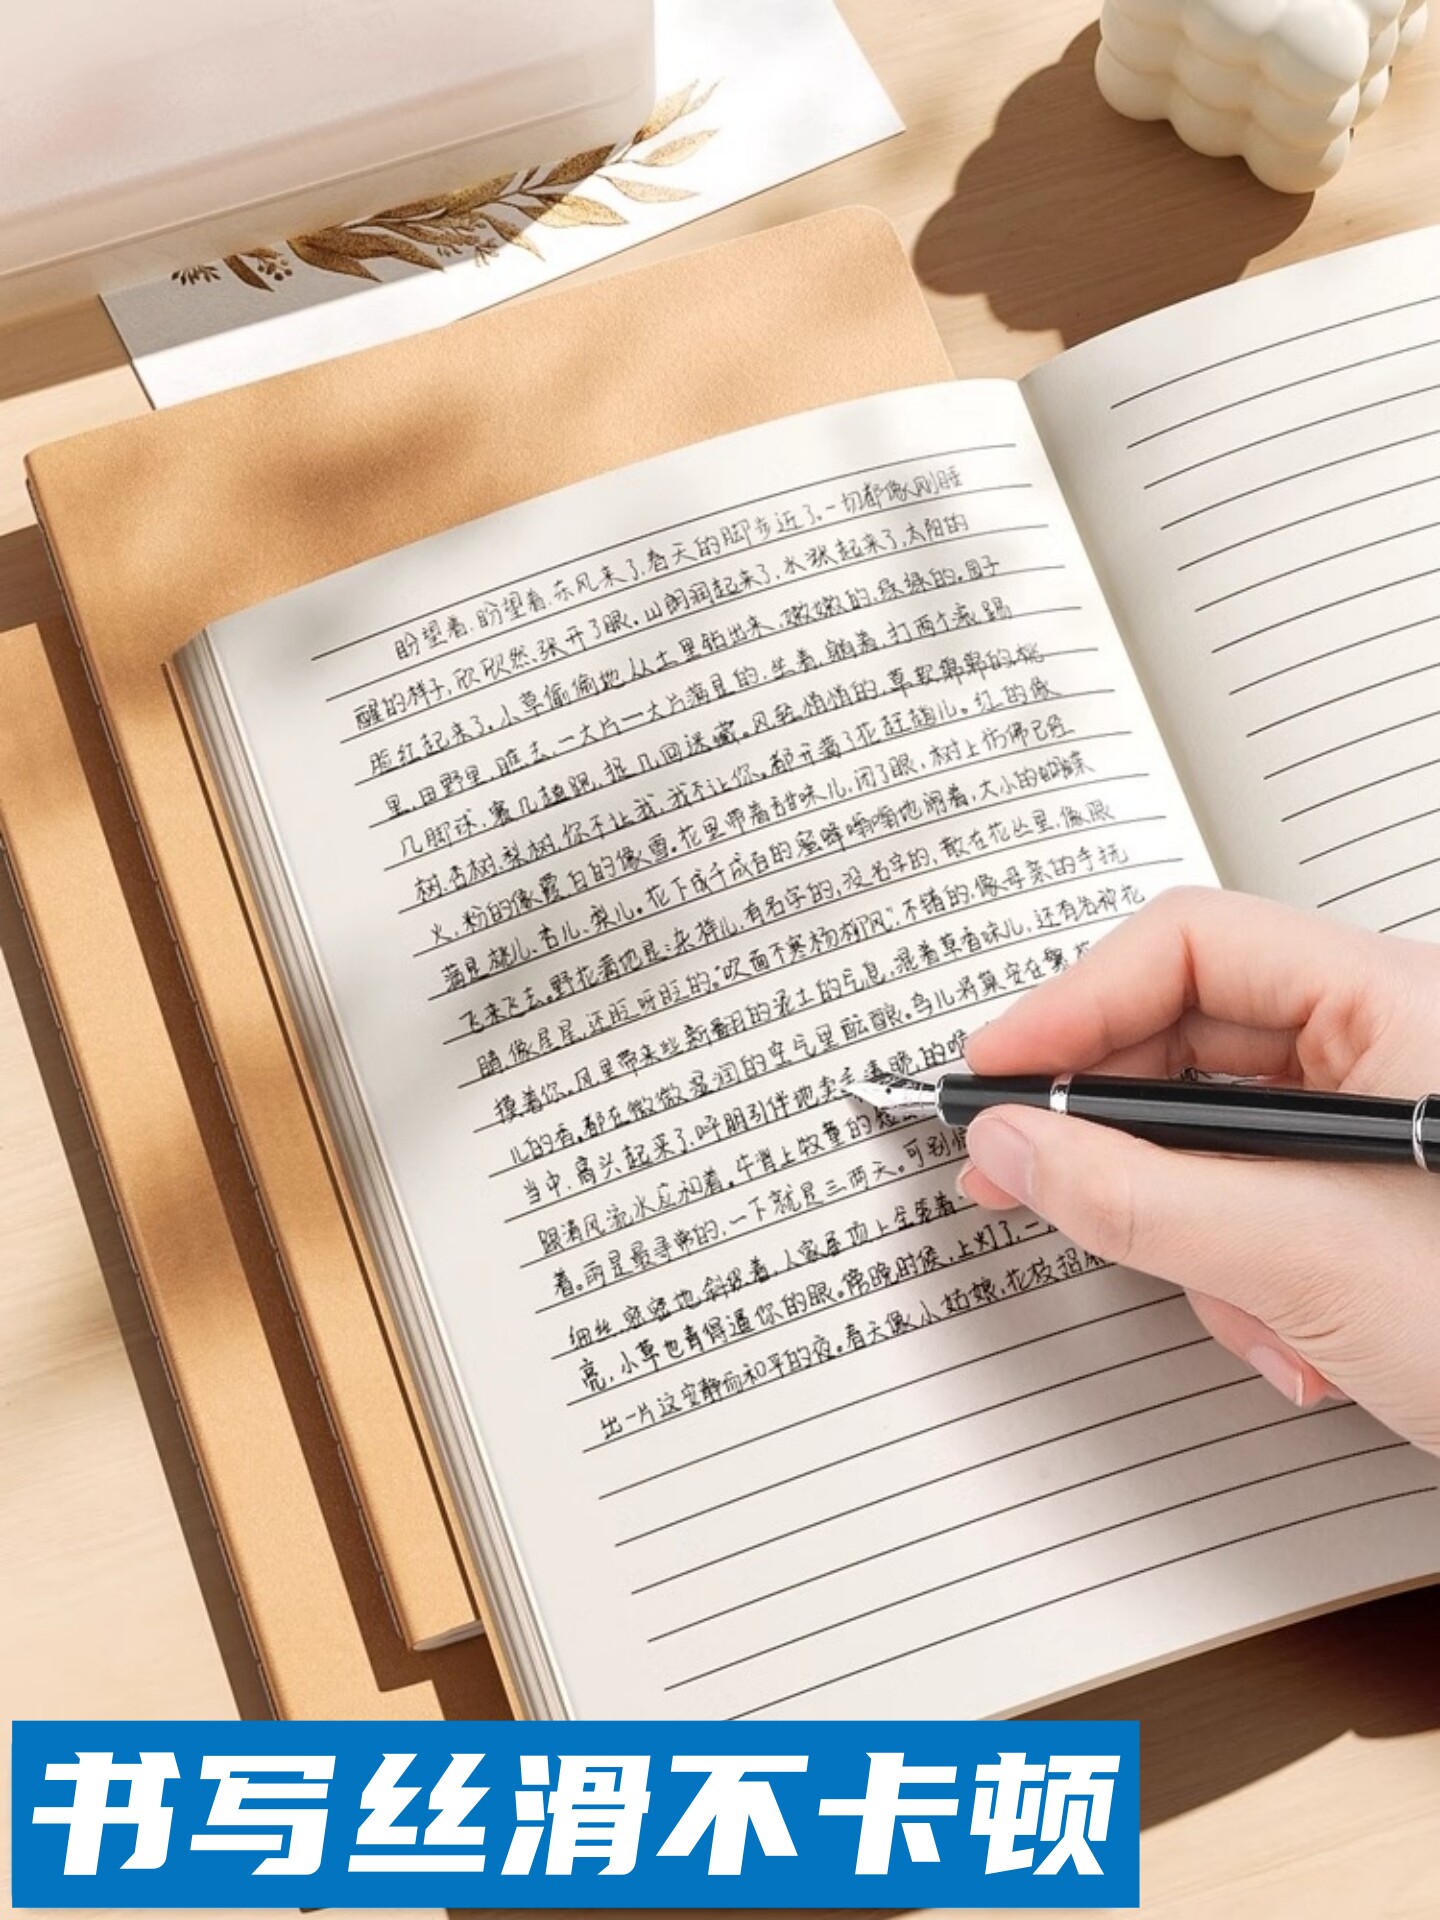 盼望着,盼望着,东风来了,春天的脚步近了。一切都像刚睡
醒的样子,欣欣然张开了眼。山朗润起来了,水涨起来了,太阳的
脸红起来了。小草偷偷地从土里钻出来,嫩嫩的,绿绿的。园子
里,田野里,瞧去,一大片一大片满是的,坐着,躺着,打两个滚,踢
几脚球,赛几趟跑,捉几回迷藏。风轻悄悄的,草软绵绵的。桃
树、杏树、梨树,你不让我,我不让你,都开满了花赶趟儿。红的像
火,粉的像霞,白的像雪。花里带着甜味儿,闭了眼,树上仿佛已经
满是桃儿、杏儿、梨儿。花下成千成百的蜜蜂嗡嗡地闹着,大小的蝴蝶
飞来飞去。野花遍地是:杂样儿,有名字的,没名字的,散在花丛里,像眼
睛,像星星,还眨呀眨的。“吹面不寒杨柳风”,不错的,像母亲的手抚
摸着你。风里带来些新翻的泥土的气息,混着草香味儿,还有各种花
儿的香,都在微微湿润的空气里酝酿。鸟儿将巢安在繁花
当中,高兴起来了,呼朋引伴地卖弄清脆的喉
跟清风流水应和着。牛背上牧童的
着。雨是最寻常的,一下就是三两天。可别恼
细丝,密密地斜织着,人家屋顶上全笼着一
亮,小草也青得逼你的眼。傍晚时候,上灯了,一
出一片这安静而和平的夜。春天像小姑娘,花枝招展
书写丝滑不卡顿